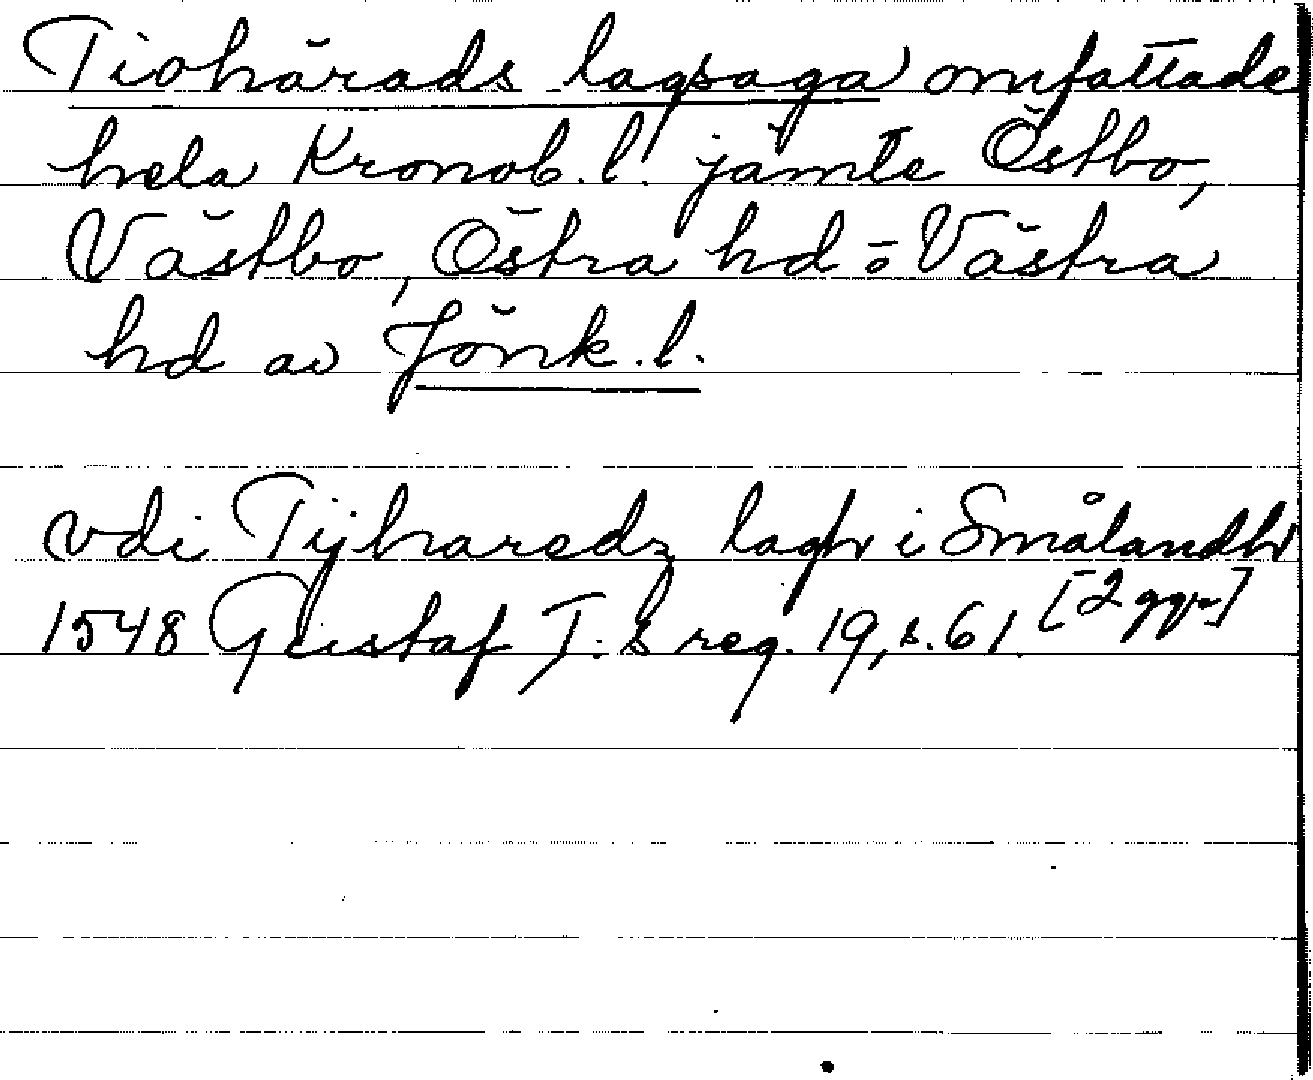 Tiohärads lagsaga omfattade
hela Kronob. l. jämte Östbo,
Västbo, Östra hd o Västra
hd av Jönk. l.
vdi Tijharedz lagh i Smålandh
1548 Gustaf I:s reg. 19, s. 61. [2 ggr]